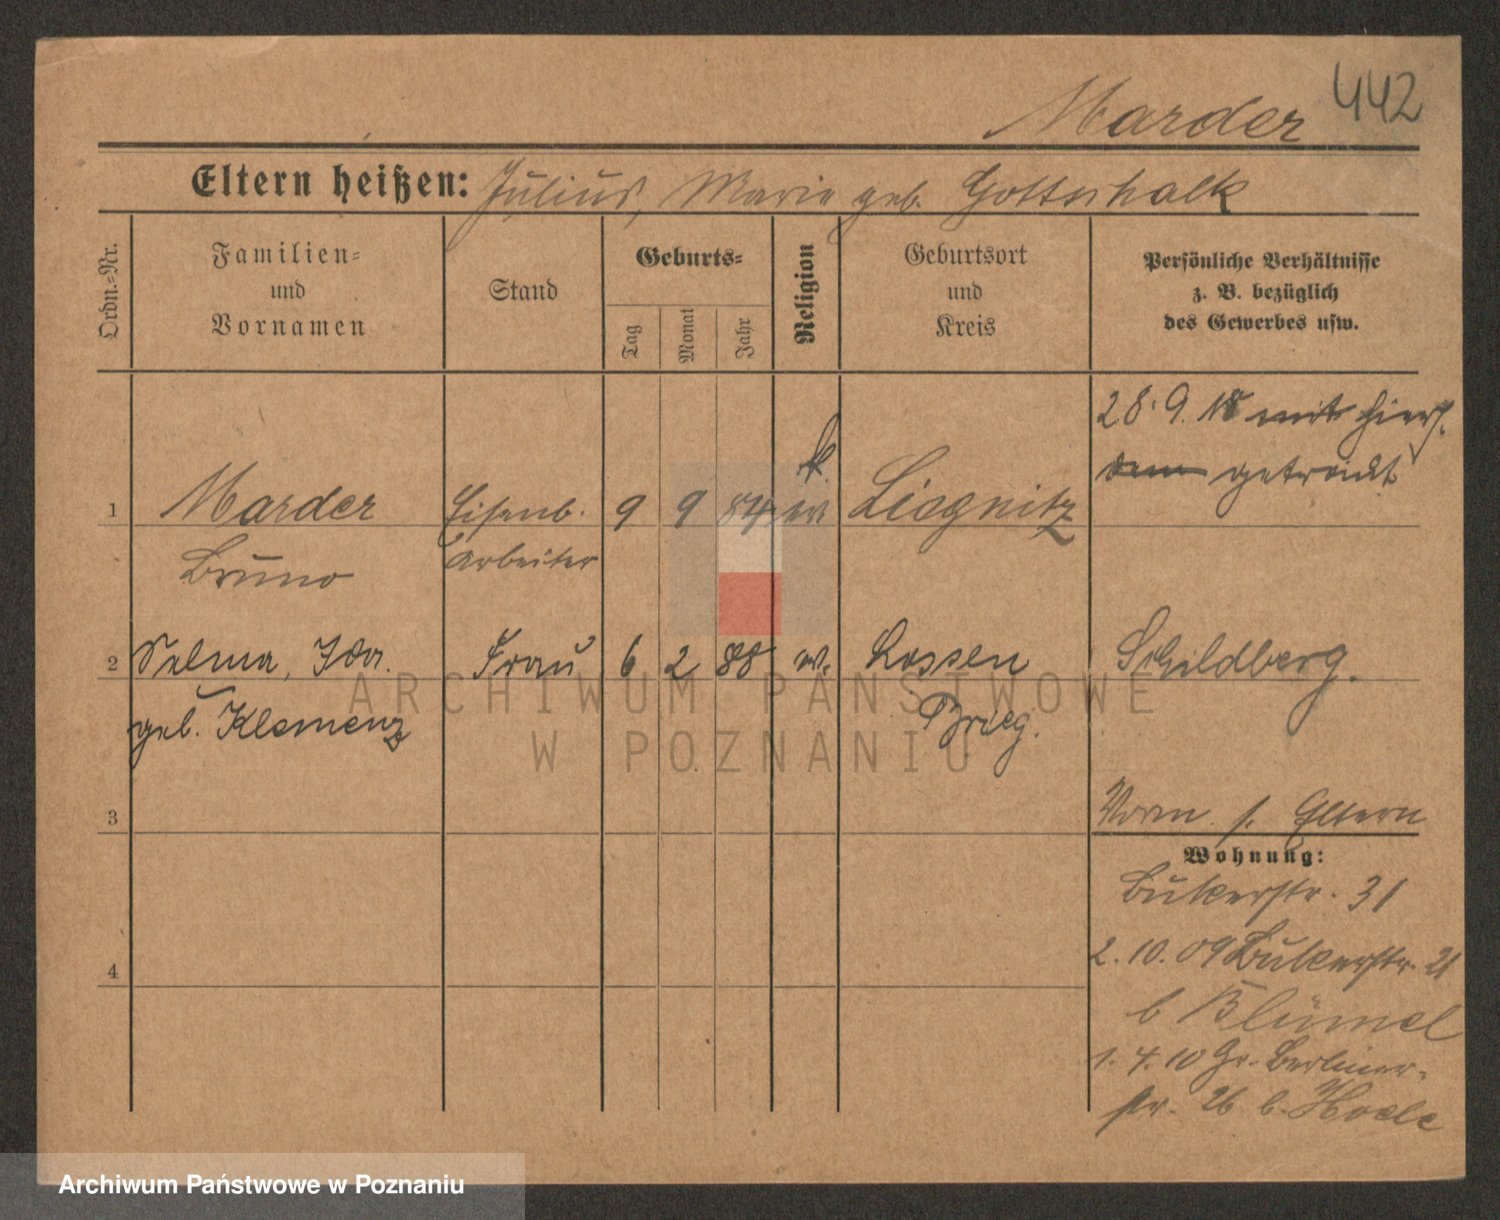 442
Marder
Eltern heißen: Julius, Marie geb. Gottschalk
Ordn.-Nr.
Familien-
und
Vornamen
Stand
Geburts-
Tag
Monat
Jahr
Religion
Geburtsort
und
Kreis
Persönliche Verhältnisse
z. B. bezüglich
des Gewerbes usw.
28. 9. 18 mit hies.
getraut
1 Marder Eisenb. 9 9 84 ev Liegnitz
Bruno arbeiter
2 Selma, Ida. Frau 6 2 88 ev. Lossen Schildberg.
geb. Klemenz Brieg.
3
Vorm. s. Eltern
Wohnung:
Bukerstr. 31
4
2. 10. 09 Bukerstr. 21
b Blümel
1. 4. 10 Gr. Berliner-
str. 26 b.
ARCHIWUM PAŃSTWOWE
W POZNANIU
Archiwum Państwowe w Poznaniu